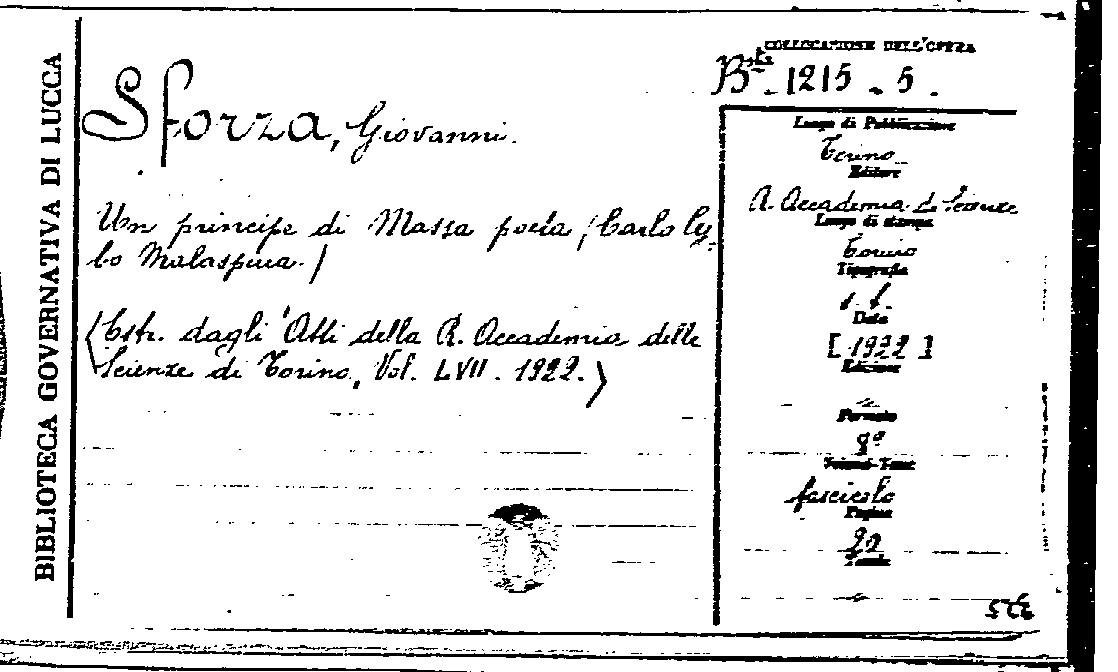 BIBLIOTECA GOVERNATIVA DI LUCCA
COLLOCAZIONE DELL'OPERA
Bta - 1215 - 5.
Sforza, Giovanni.
Un principe di Massa poeta (Carlo Cy-
bo Malaspina.)
(Estr. dagli Atti della R. Accademia delle
Scienze di Torino, Vol. LVII. 1922.)
Luogo di Pubblicazione
Torino
Editore
R. Accademia d. Scienze
Luogo di stampa
Torino
Tipografia
s. t.
Data
[1922]
Edizione
Formato
8°
Volumi-Tomi
fascicolo
Pagine
20
Tavole